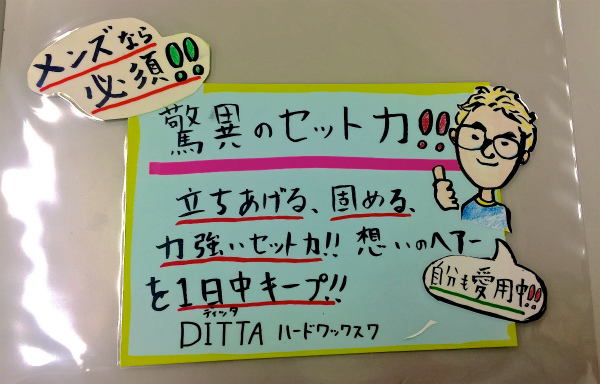 メンズなら
必須!!
驚異のセット力!!
立ちあげる、固める、
力強いセット力!! 想いのヘアー
を1日中キープ!!
ディッタ
DITTA ハードワックス7
自分も愛用中!!